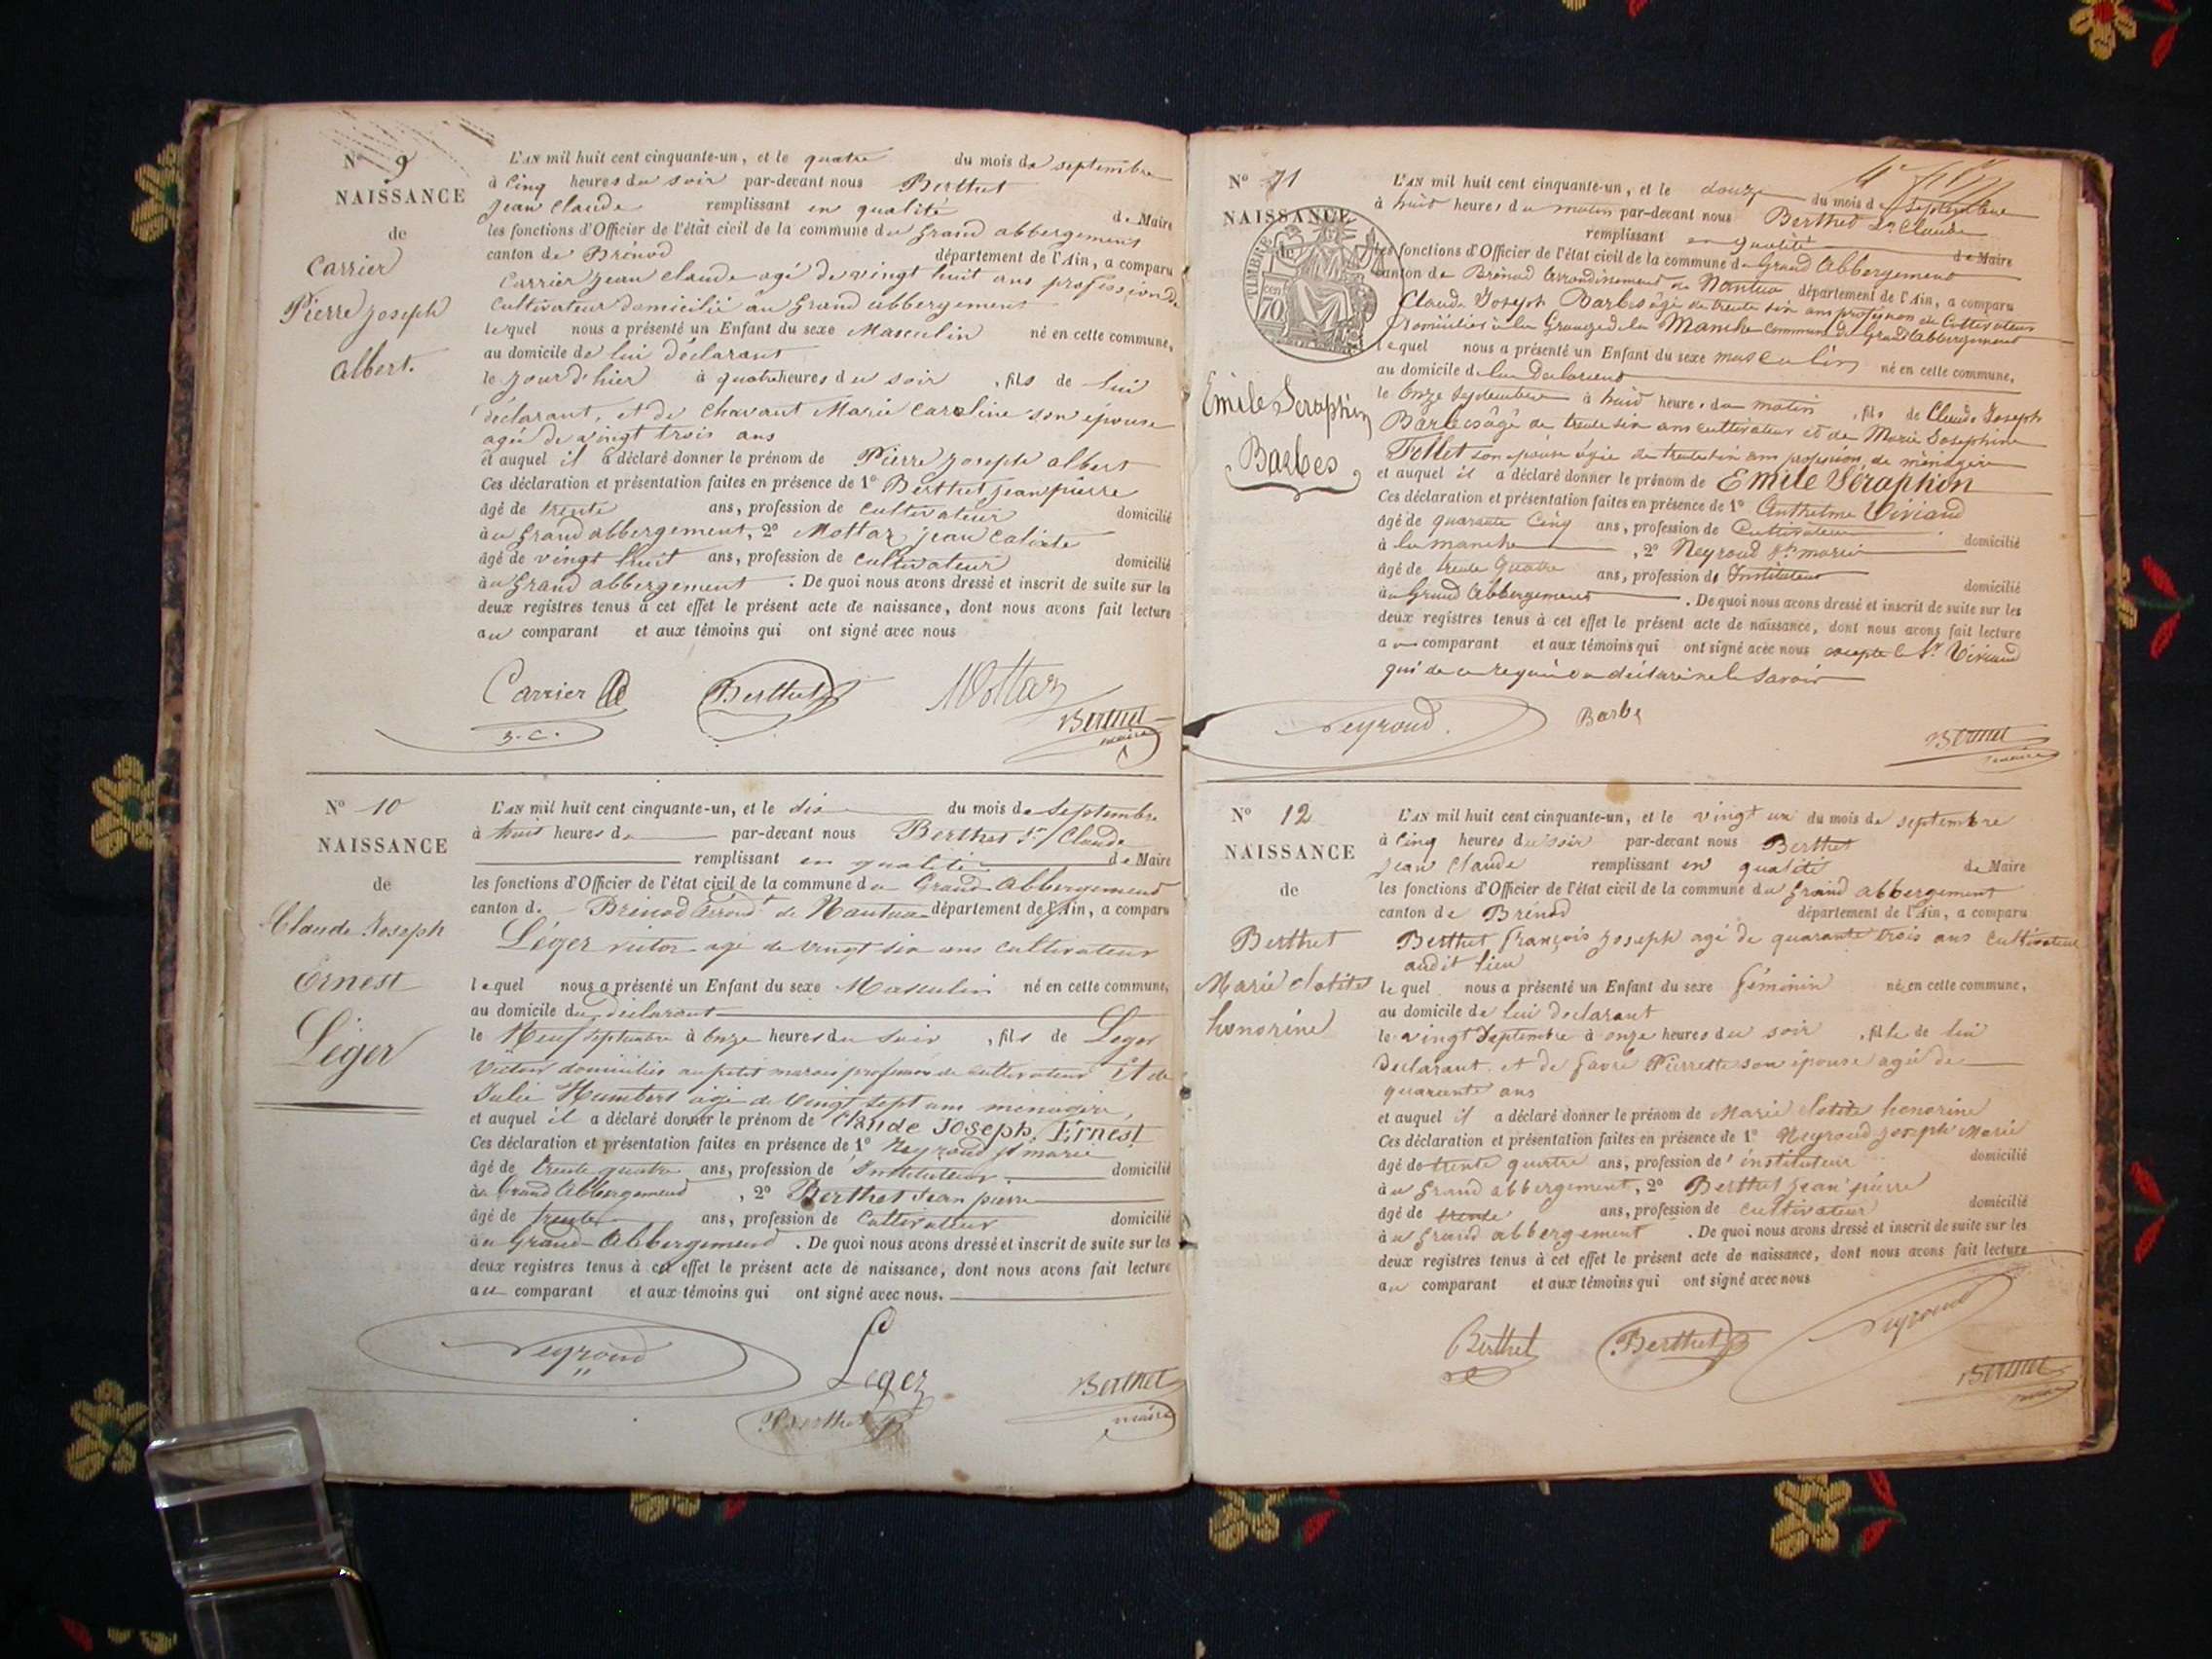 N° 9
NAISSANCE
de
Carrier
Pierre joseph
albert.
L'AN mil huit cent cinquante-un, et le quatre du mois de septembre
à Cinq heures du soir par-devant nous Berthet
jean Claude remplissant en qualité de Maire
les fonctions d'Officier de l'état civil de la commune du grand abbergement
canton de Brénod département de l'Ain, a comparu
Carrier jean claude agé de vingt huit ans profession de
Cultivateur domicilié au grand abbergement
lequel nous a présenté un Enfant du sexe Masculin né en cette commune,
au domicile de lui déclarant
le jour d'hier à quatre heures du soir , fils de lui
déclarant, et de Chavant Marie Caroline son épouse
agée de vingt trois ans
et auquel il a déclaré donner le prénom de Pierre joseph albert
Ces déclaration et présentation faites en présence de 1° Berthet jean pierre
âgé de trente ans, profession de cultivateur domicilié
à au grand abbergement, 2° Mottaz jean calixte
âgé de vingt huit ans, profession de cultivateur domicilié
à au grand abbergement . De quoi nous avons dressé et inscrit de suite sur les
deux registres tenus à cet effet le présent acte de naissance, dont nous avons fait lecture
au comparant et aux témoins qui ont signé avec nous
Carrier Berthet Mottaz
J. C. Berthet
maire
N° 10
NAISSANCE
de
Claude Joseph
Ernest
Léger
L'AN mil huit cent cinquante-un, et le dix du mois de Septembre
à huit heures d par-devant nous Berthet Jn Claude
remplissant en qualité de Maire
les fonctions d'Officier de l'état civil de la commune du Grand Abbergement
canton de Brénod arrondt de Nantua département de l'Ain, a comparu
Léger victor agé de vingt six ans cultivateur
lequel nous a présenté un Enfant du sexe Masculin né en cette commune,
au domicile du déclarant
le Neuf septembre à onze heures du soir , fils de Leger
Victor domicilié au petit marais profession de cultivateur Et de
Julie Humbert agée de vingt sept ans ménagère,
et auquel il a déclaré donner le prénom de Claude Joseph Ernest
Ces déclaration et présentation faites en présence de 1° Neyroud Jh marie
âgé de trente quatre ans, profession de Instituteur. domicilié
à au Grand Abbergement , 2° Berthet Jean pierre
âgé de trente ans, profession de Cultivateur domicilié
à au Grand Abbergement . De quoi nous avons dressé et inscrit de suite sur les
deux registres tenus à cet effet le présent acte de naissance, dont nous avons fait lecture
au comparant et aux témoins qui ont signé avec nous.
Neyroud Leger Berthet
Berthet maire
N° 11
NAISSANCE
de
TIMBRE
70 cen
Emile Seraphin
Barbes
L'AN mil huit cent cinquante-un, et le douze du mois de Septembre
à huit heures du matin par-devant nous Berthet Jn Claude
remplissant en qualité de Maire
les fonctions d'Officier de l'état civil de la commune du Grand Abbergement
canton de Brénod arrondissement de Nantua département de l'Ain, a comparu
Claude Joseph Barbes âgé de trente six ans profession de Cultivateur
Domicilié à la Grange de la Manche commune du Grand Abbergement
lequel nous a présenté un Enfant du sexe masculin né en cette commune,
au domicile de lui Declarant
le Onze Septembre à huit heures du matin , fils de Claude Joseph
Barbes âgé de trente six ans cultivateur et de Marie Josephine
Tillet son épouse agée de ans profession de ménagère
et auquel il a déclaré donner le prénom de Emile Séraphin
Ces déclaration et présentation faites en présence de 1° Anthelme Viviand
âgé de quarante Cinq ans, profession de Cultivateur
à la manche , 2° Neyroud Jh marie domicilié
âgé de trente Quatre ans, profession de Instituteur
à au Grand Abbergement . De quoi nous avons dressé et inscrit de suite sur les domicilié
deux registres tenus à cet effet le présent acte de naissance, dont nous avons fait lecture
au comparant et aux témoins qui ont signé avec nous excepté le Sr Viviand
qui de ce requis a déclaré ne le savoir
Neyroud. Barbe Berthet
maire
N° 12
NAISSANCE
de
Berthet
Marie clotilde
honorine
L'AN mil huit cent cinquante-un, et le vingt un du mois de septembre
à Cinq heures du soir par-devant nous Berthet
jean Claude remplissant en qualité de Maire
les fonctions d'Officier de l'état civil de la commune du grand abbergement
canton de Brénod département de l'Ain, a comparu
Berthet françois joseph agé de quarante trois ans cultivateur
audit lieu
lequel nous a présenté un Enfant du sexe féminin née en cette commune,
au domicile de lui declarant
le vingt Septembre à onze heures du soir , fille de lui
Declarant et de favre Pierrette son épouse agée de
quarante ans
et auquel il a déclaré donner le prénom de Marie clotilde honorine
Ces déclaration et présentation faites en présence de 1° Neyroud joseph Marie
âgé de trente quatre ans, profession d'instituteur domicilié
à au grand abbergement, 2° Berthet jean pierre
âgé de trente ans, profession de cultivateur domicilié
à au grand abbergement . De quoi nous avons dressé et inscrit de suite sur les
deux registres tenus à cet effet le présent acte de naissance, dont nous avons fait lecture
au comparant et aux témoins qui ont signé avec nous
Berthet Berthet Neyroud
Berthet
maire